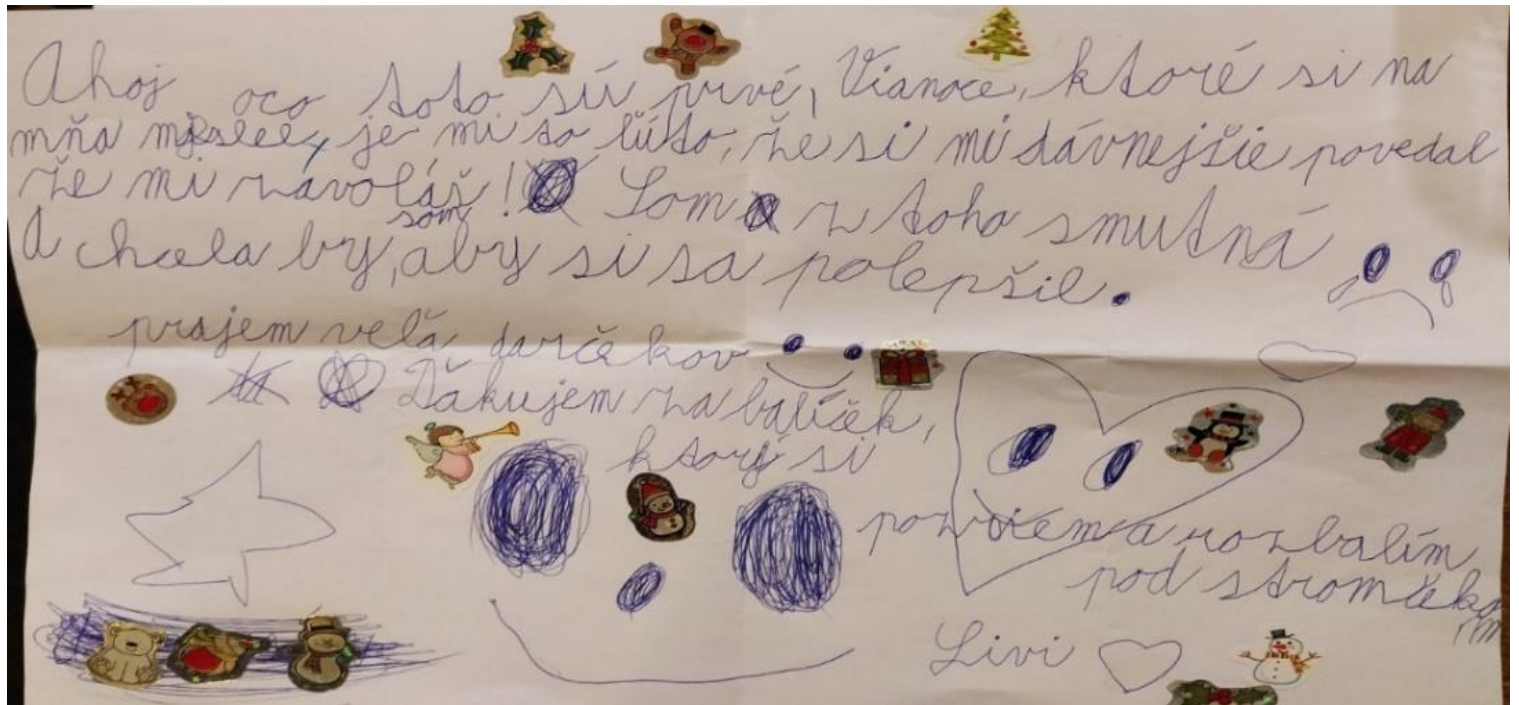 Ahoj oco toto sú prvé, Vianoce, ktoré si na
mňa myslel, je mi to ľúto, že si mi dávnejšie povedal
že mi zavoláš! Som z toho smutná
som
A chcela by, aby si sa polepšil.
prajem veľa darčekov
Ďakujem za balíček,
ktorý si
pozriem a rozbalím
pod stromčekom
Livi